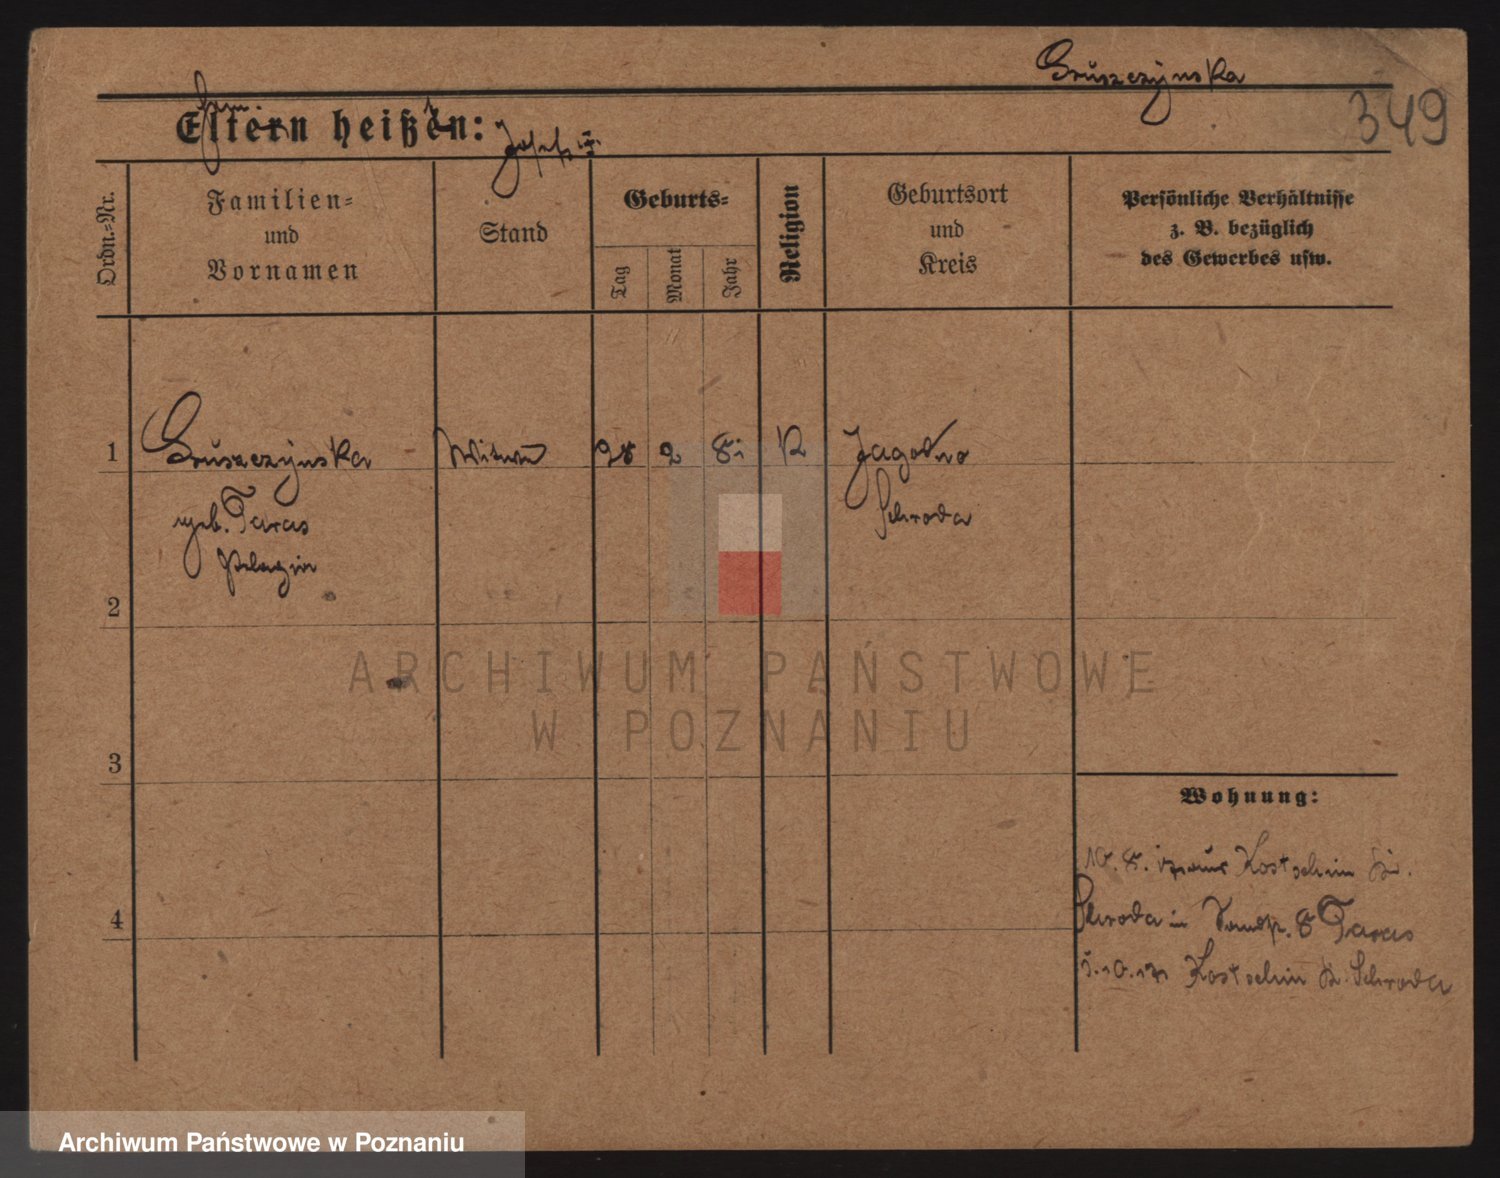 Gruszczynska
349
Eltern heißen:
Josef
Ordn.-Nr.
Familien-
und
Vornamen
Stand
Geburts-
Tag
Monat
Jahr
Religion
Geburtsort
und
Kreis
Persönliche Verhältnisse
z. B. bezüglich
des Gewerbes usw.
1 Gruszczynska Witwe 28 2 81 K Jagodno
geb. Taras Schroda
Pelagia
2
3
4
Wohnung:
10. 8. Kostschin Kr.
Schroda in 8 Taras
Kostschin Kr. Schroda
ARCHIWUM PAŃSTWOWE
W POZNANIU
Archiwum Państwowe w Poznaniu